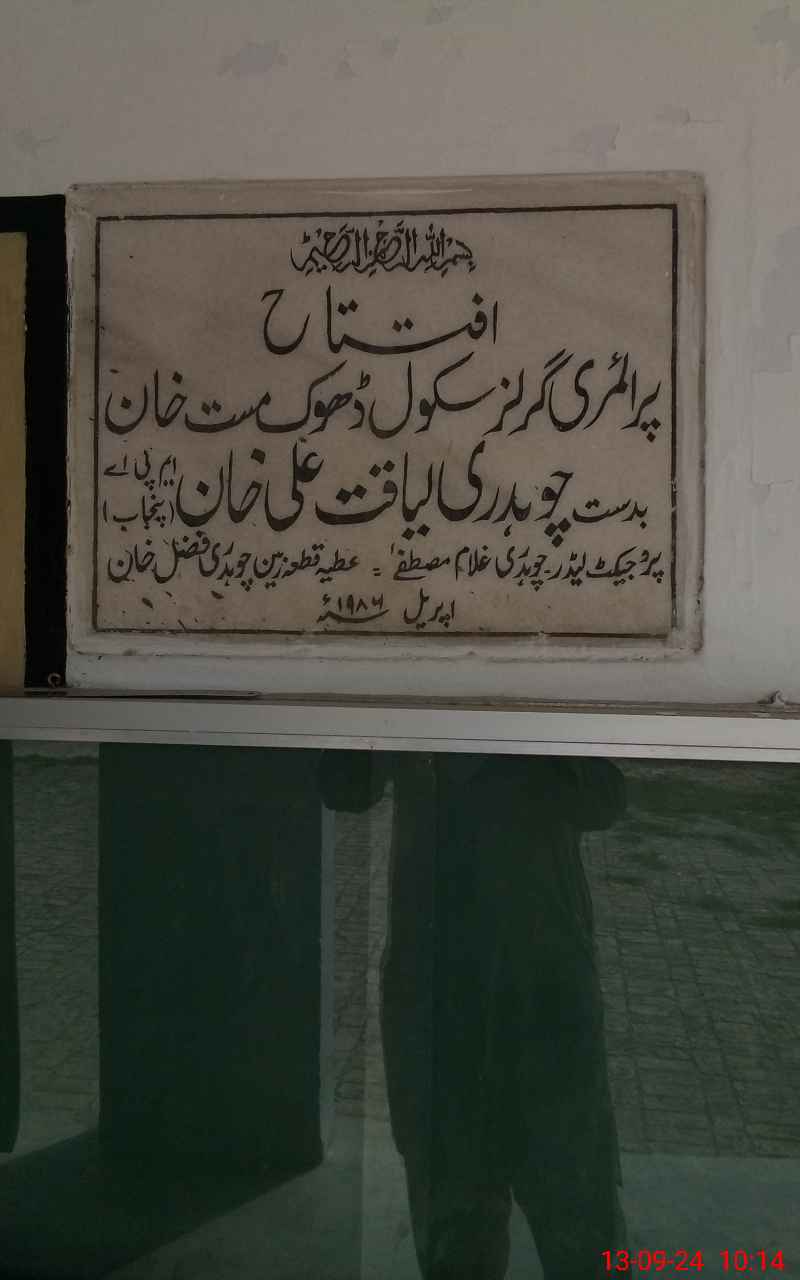 بسم اللہ الرحمن الرحیم
افتتاح
پرائمری گرلز سکول ڈھوک مست خان
بدست چوہدری لیاقت علی خان ایم پی اے (پنجاب)
پروجیکٹ لیڈر۔ چوہدری غلام مصطفےٰ ۔ عطیہ قطعہ زمین چوہدری فضل خان
اپریل ۱۹۸۶ء
13-09-24 10:14